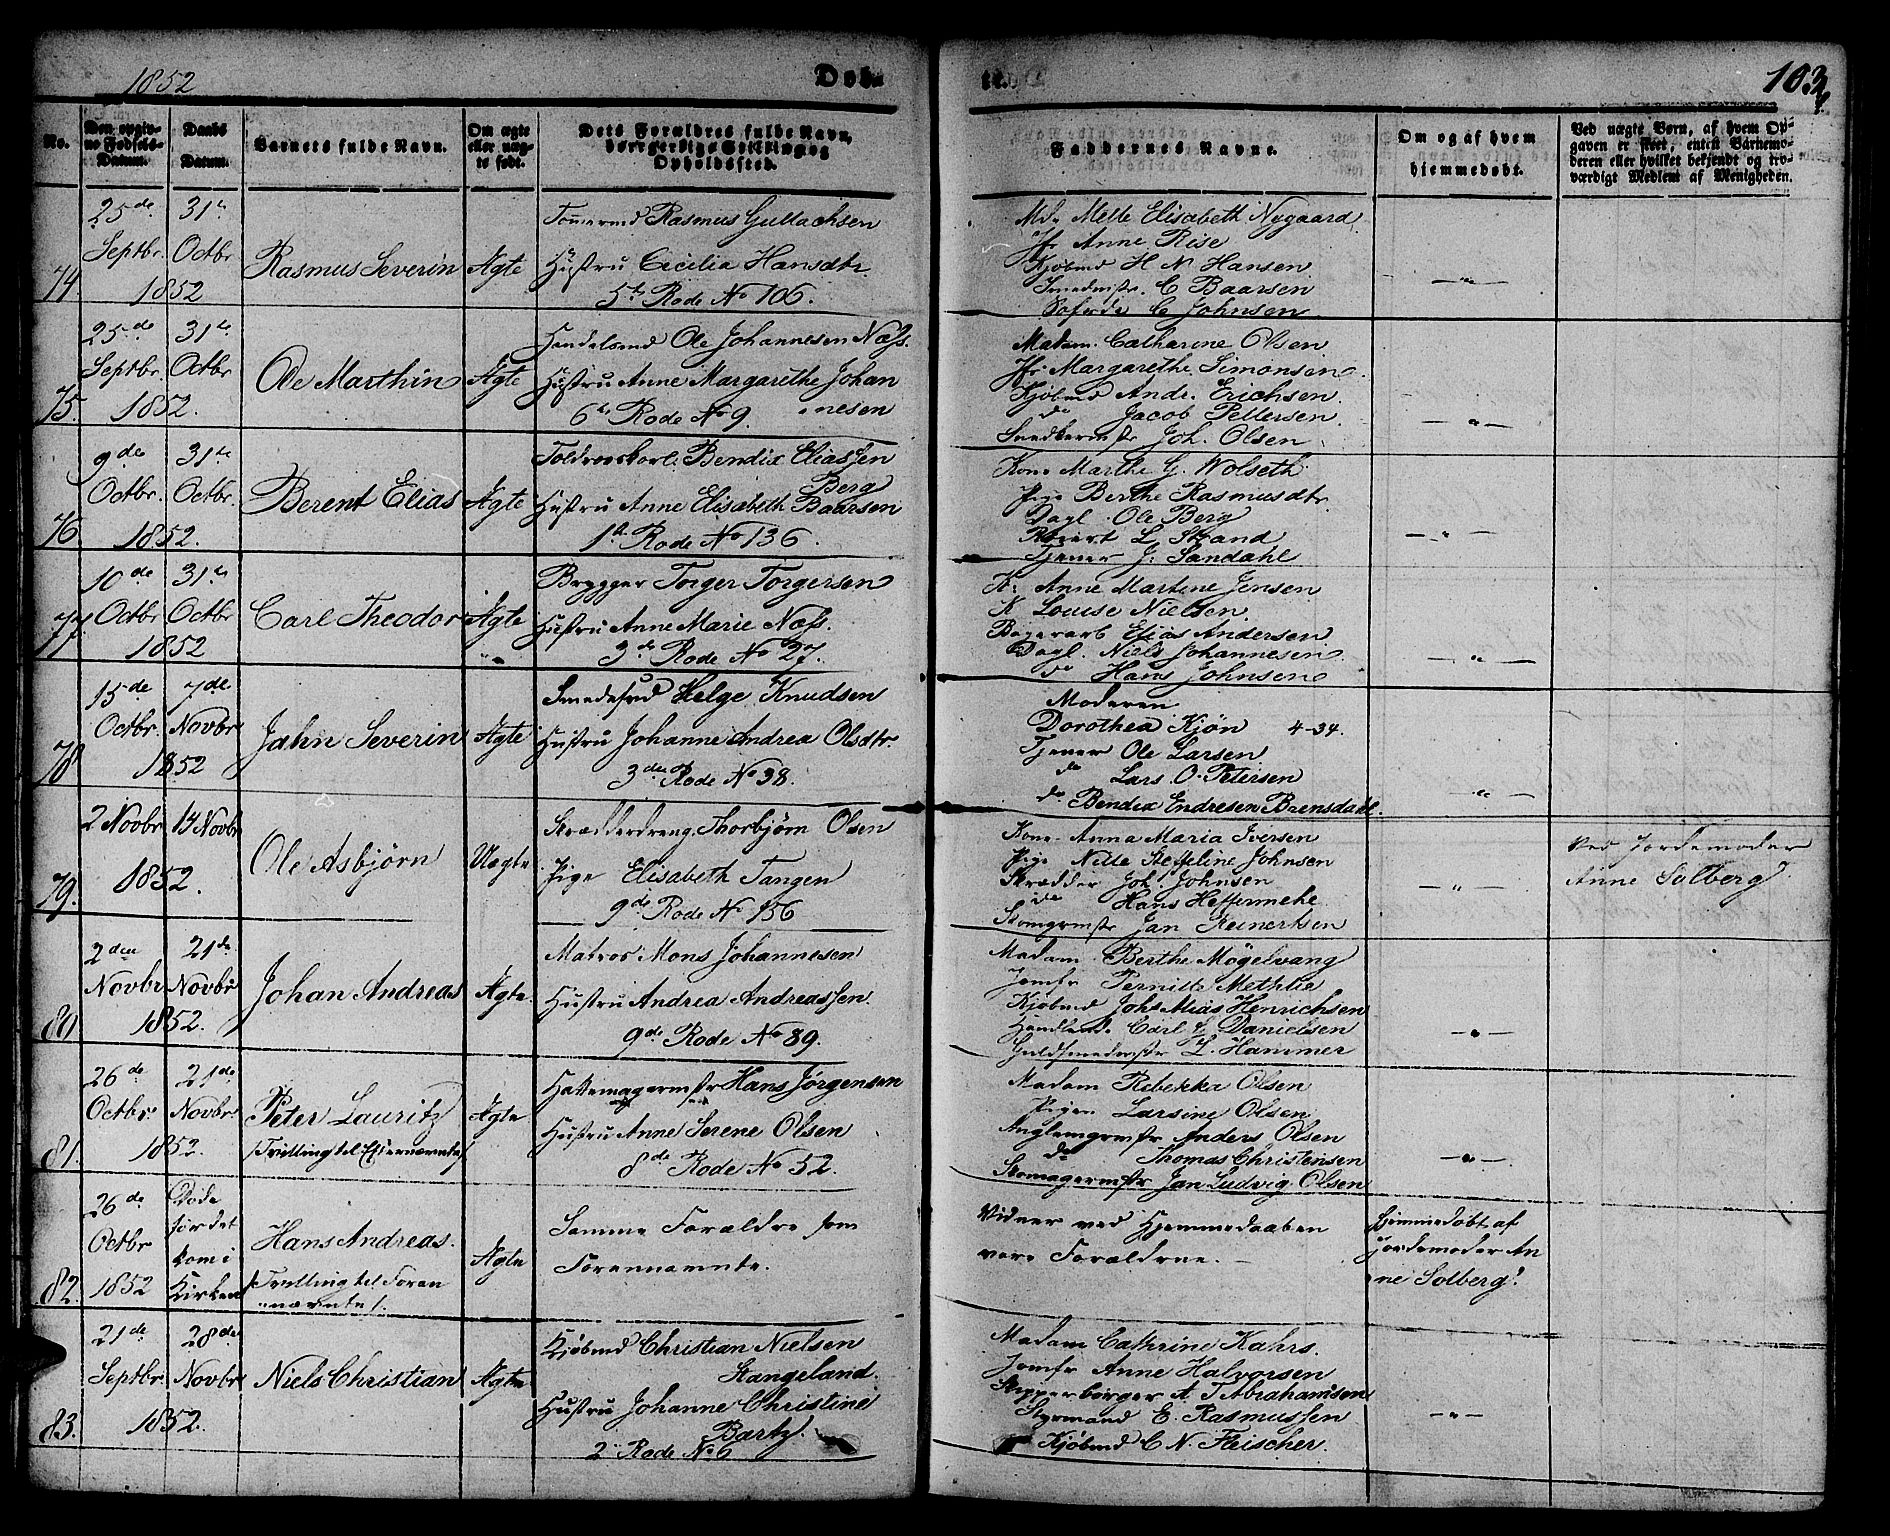 1852
Døb-
te.
103
No.
Den opgiv-
ne Fødsels-
Datum.
Daabs
Datum.
Barnets fulde Navn.
Om ægte
eller uæg-
te født.
Dets Forældres fulde Navn,
borgerlige Stilling og
Opholdssted.
Faddernes Navne.
Om og af hvem
hjemmedøbt.
Ved uægte Børn, af hvem Op-
gaven er skeet, enten Barnemo-
deren eller hvilket bekjendt og tro-
værdigt Medlem af Menigheden.
74
25de Septbr 1852
31te Octbr
Rasmus Severin
Ægte
Tømmermd Rasmus Gullachsen
Hustru Cicilia Hansdtr
5te Rode No 106.
Md. Mette Elisabeth Nygaard
Jfr Anne Rise
Kjøbmd H N Hansen
Smedmstr. C Baarsen
C Johnsen
75.
25de Septbr. 1852.
31te Octbr
Ole Marthin
Ægte
Handelsmd Ole Johannesen Næss.
Hustru Anne Margarethe Johan
nesen
6te Rode No 9.
Madam. Catharine Olsen
Jfr. Margarethe Simonsen.
Kjøbmd Andr. Erichsen.
do Jacob Pettersen
Snedkermstr Joh. Olsen
76
9de Octbr. 1852.
31te Octbr.
Berent Elias
Ægte
Toldroerskarl. Bendix Eliassen
Berg
Hustru Anne Elisabeth Baarsen
1ste Rode No 136.
Kone Marthe G. Wolseth
Pige Berthe Rasmusdtr.
Dagl. Ole Berg
L Strand
Tjener J. Sandahl
77
10de Octbr 1852
31te Octbr
Carl Theodor
Ægte
Brygger Torger Torgersen
Hustru Anne Marie Næss.
3de Rode No 27.
K. Anne Martine Jensen
K Louise Nielsen.
Bøgerarb Elias Andersen
Dagl. Niels Johannesen.
do Hans Johnsen
78
15de Octbr. 1852
7de Novbr
Jahn Severin
Ægte
Smedesvd Helge Knudsen
Hustru Johanne Andrea Olsdtr.
3de Rode No 38.
Moderen
Dorothea Kjøn 4-34.
Tjener Ole Larsen
do Lars O. Petersen
do Bendix Endresen Brensdahl.
79.
2 Novbr 1852.
14 Novbr
Ole Asbjørn
Uægte
Skrædderdreng Thorbjørn Olsen
Pige Elisabeth Tangen
9de Rode No 156
Kone Anna Maria Iversen
Pige Nille Steffeline Johnsen
Skrædder Joh. Johnsen
do Hans Heffermehl
Skomgrmstr Jan Reinertsen
Ved Jordemoder
Anne Solberg
80
2den Novbr 1852.
21de Novbr
Johan Andreas
Ægte.
Matros Mons Johannesen
Hustru Andrea Andreassen.
9de Rode No 89.
Madam Berthe Møgelvang
Jomfr Pernille Methlie
Kjøbmd Johs Mias Henrichsen
Handlende Carl E Danielsen
Guldsmedmstr L. Hammer
81.
26de Octbr 1852.
21de Novbr.
Peter Lauritz
/Tvilling til Efternævnte/
Ægte
Hattemagermstr Hans Jørgensen
Hustru Anne Serene Olsen
8de Rode No 52.
Madam Rebekka Olsen
Pigen Larsine Olsen
Anders Olsen
do Thomas Christensen
Skomagermstr Jan Ludvig Olsen
82.
26de Octbr 1852
Døde
før det
kom i
Kirken
Hans Andreas.
/Tvilling til Foran
nævnte/.
Ægte
Samme Forældre som
Forannævnte.
Vidner ved Hjemmedaaben
vare Forældrene.
Hjemmedøbt af
Jordemoder An
ne Solberg.
83.
21de Septbr 1852.
28de Novbr
Niels Christian
Ægte
Kjøbmd Christian Nielsen
Stangeland.
Hustru Johanne Christine
Bartz.
2 Rode No 6
Madam Cathrine Kahrs.
Jomfr Anne Halvorsen
Skipperborger A. T Abrahamsen
Styrmand E. Rasmussen
Kjøbmd C N. Fleischer.